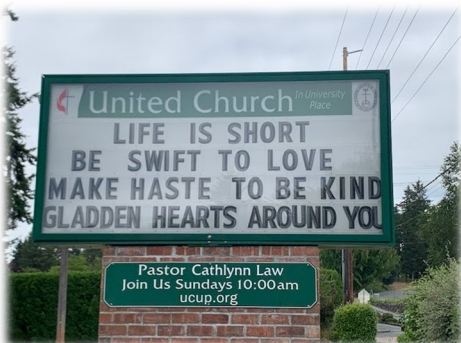 United Church In University
Place
LIFE IS SHORT
BE SWIFT TO LOVE
MAKE HASTE TO BE KIND
GLADDEN HEARTS AROUND YOU
Pastor Cathlynn Law
Join Us Sundays 10:00am
ucup.org